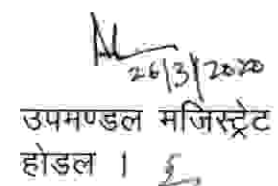 26/3/2020
उपमण्डल मजिस्ट्रेट
होडल ।